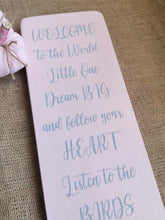 WELCOME
to the World
Little One
Dream BIG
and follow your
HEART
Listen to the
BIRDS